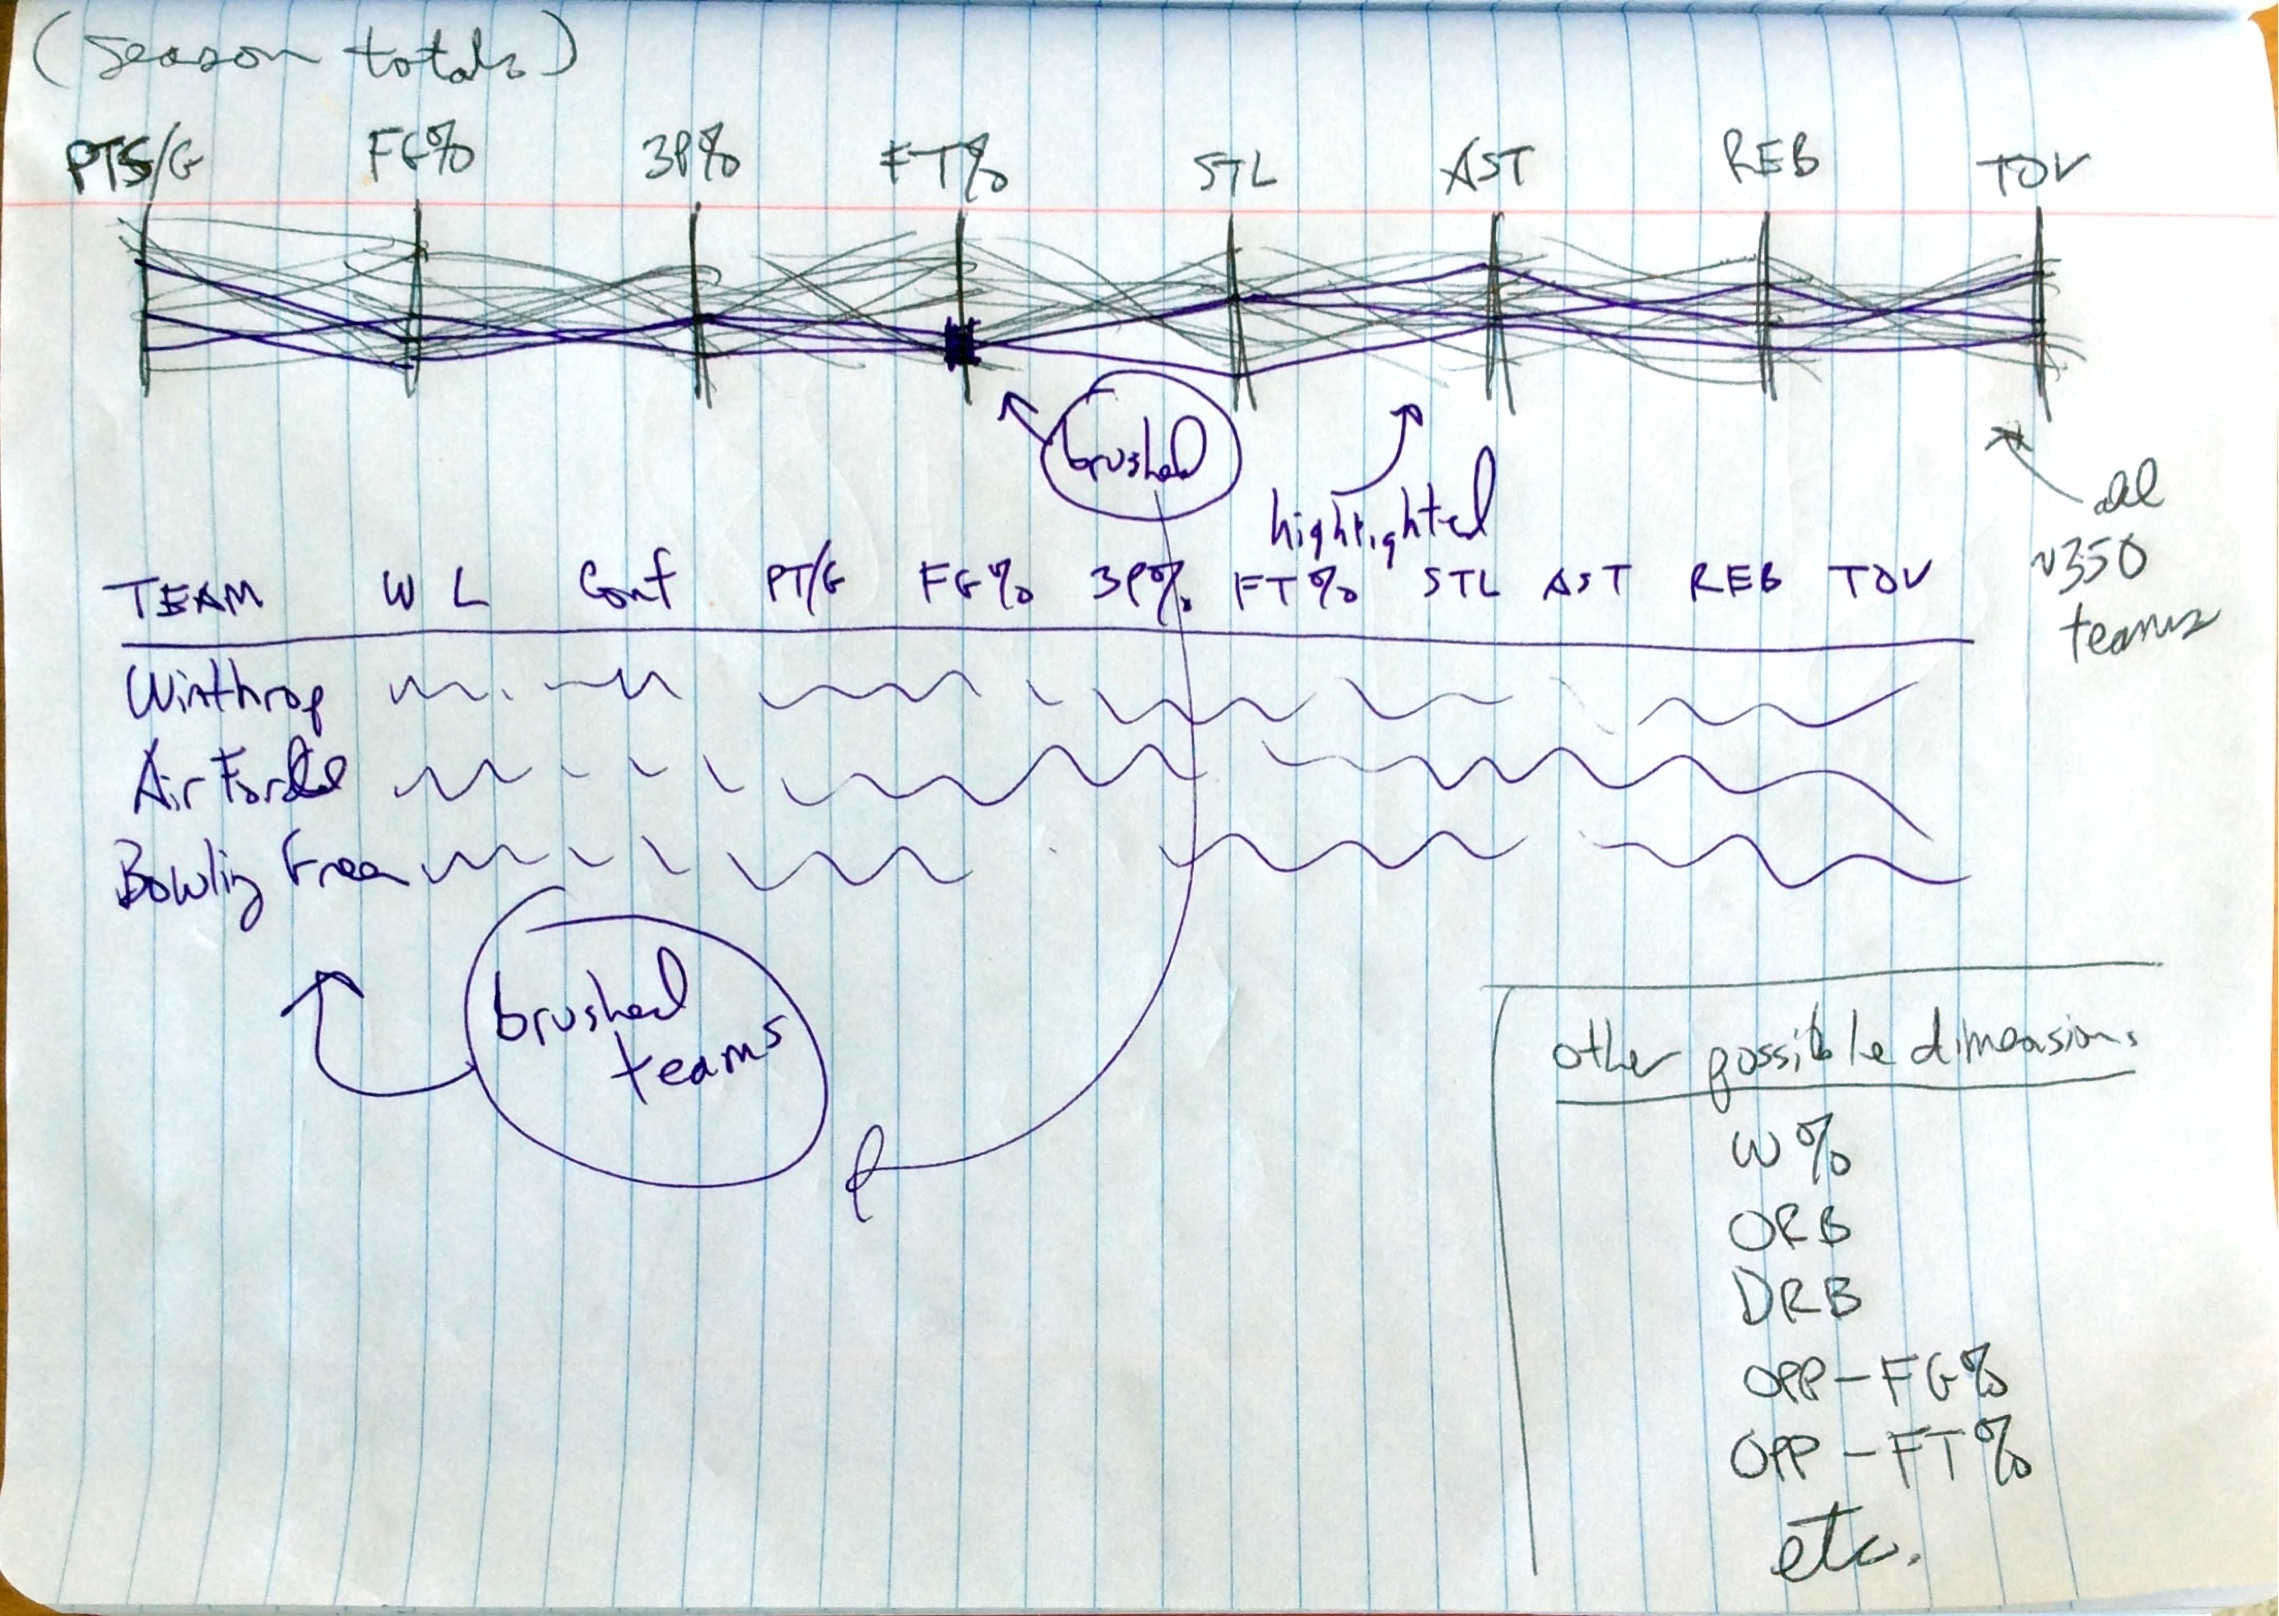 (season totals)
PTS/G FG% 3P% FT% STL AST REB TOV
brushed
highlighted
all
~350
teams
TEAM W L Conf PT/G FG% 3P% FT% STL AST REB TOV
Winthrop
Air Force
Bowling Green
brushed
teams
other possible dimensions
W%
ORB
DRB
OPP-FG%
OPP-FT%
etc.